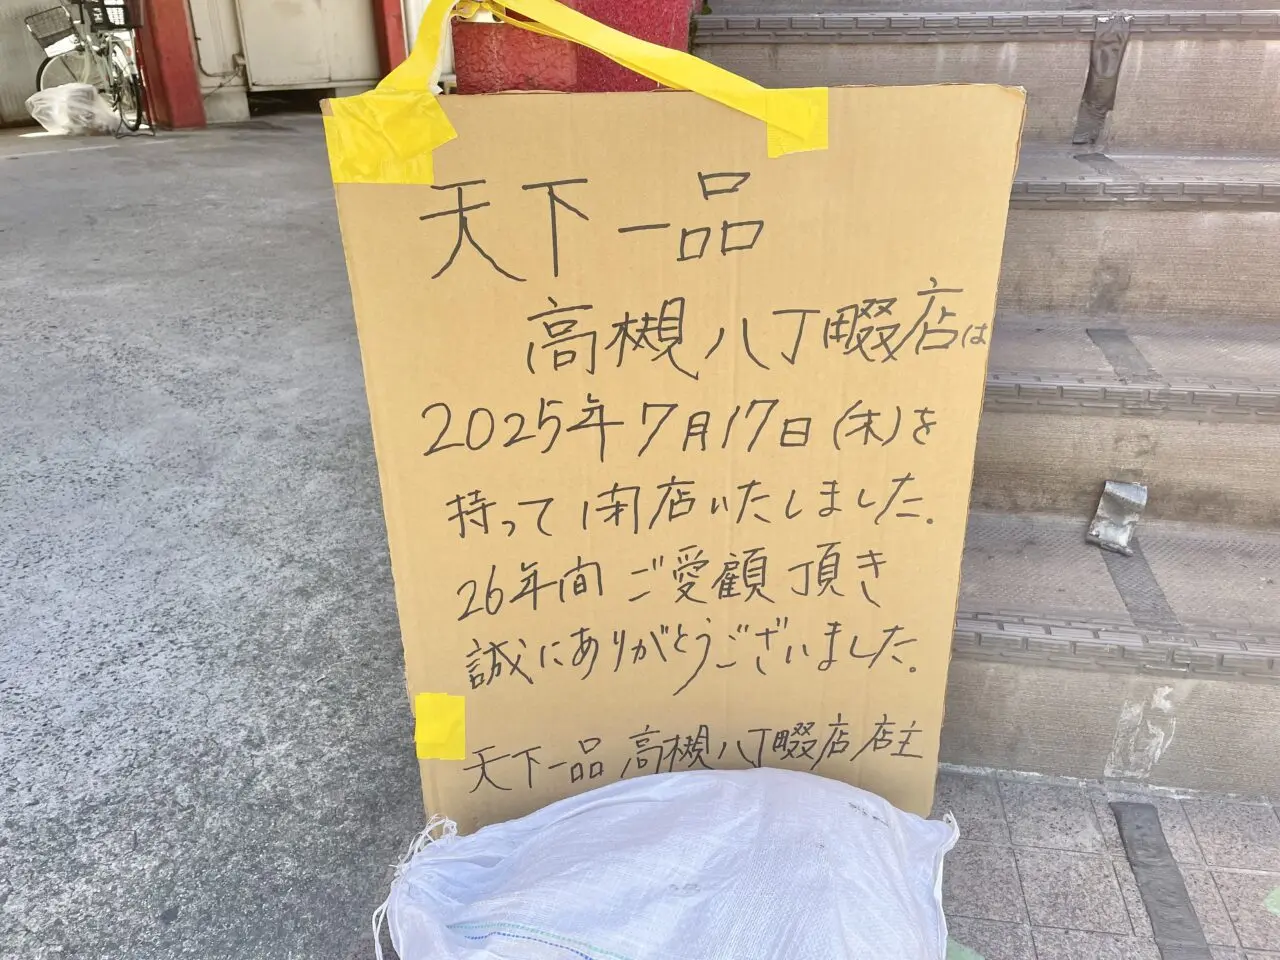 天下一品
高槻八丁畷店は
2025年7月17日(木)を
持って閉店いたしました.
26年間ご愛顧頂き
誠にありがとうございました。
天下一品 高槻八丁畷店 店主